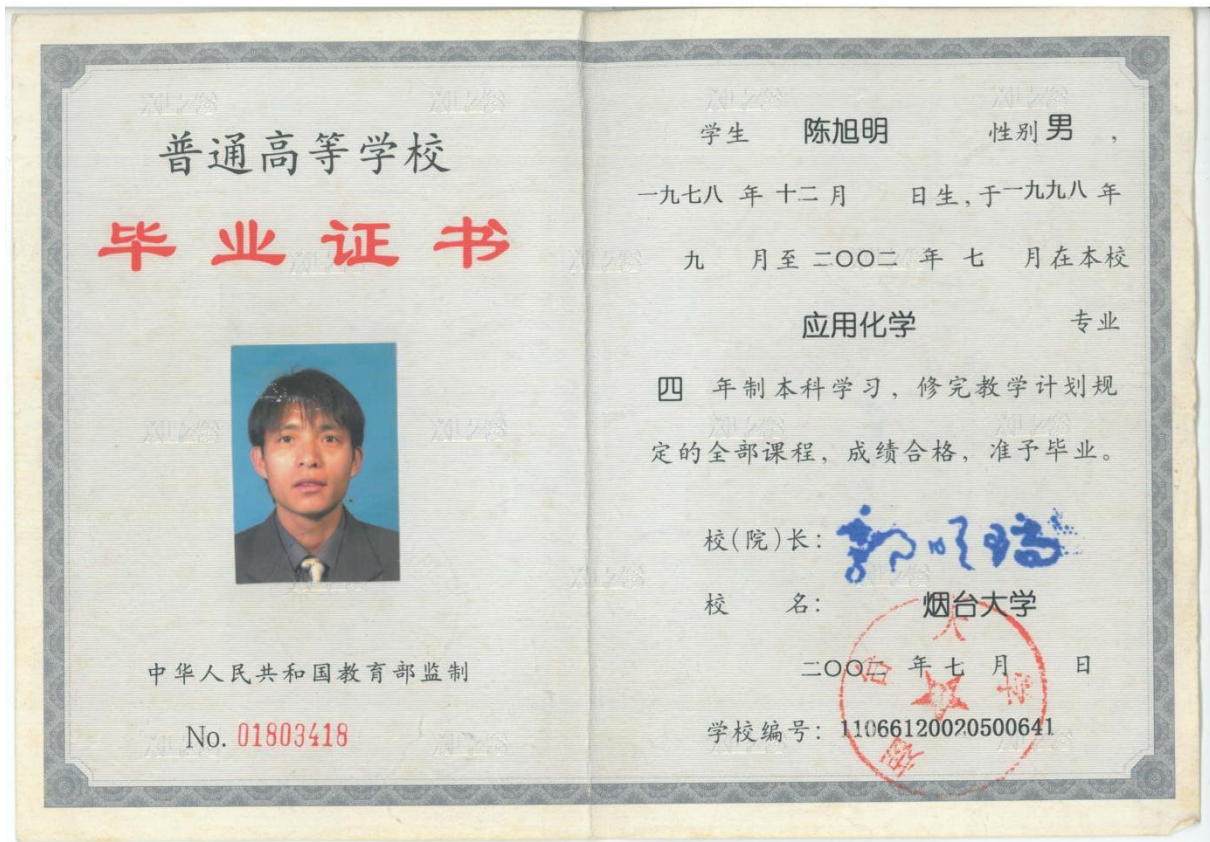 普通高等学校
毕业证书
中华人民共和国教育部监制
No. 01803418
学生 陈旭明 性别 男 ,
一九七八 年 十二 月 日生,于 一九九八 年
九 月至 二〇〇二 年 七 月在本校
应用化学 专业
四 年制本科学习，修完教学计划规
定的全部课程，成绩合格，准予毕业。
校(院)长：
校 名： 烟台大学
二〇〇二 年 七 月 日
学校编号：11066120020500641
烟台大学